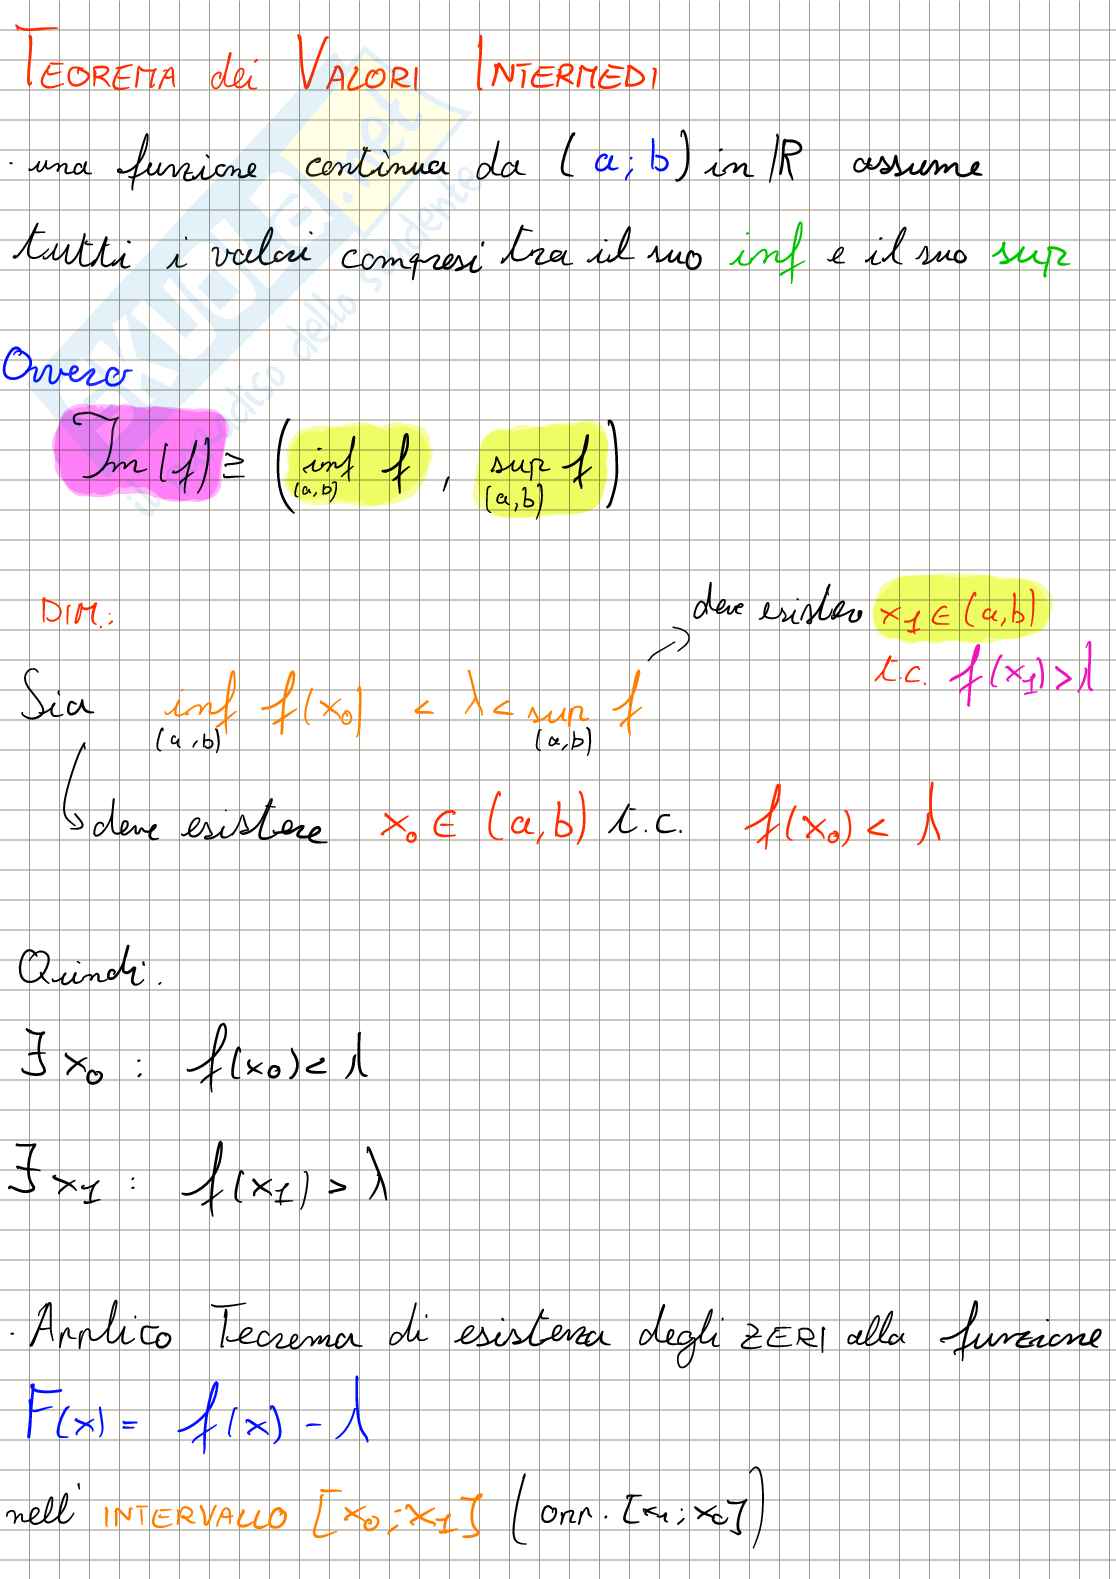 TEOREMA dei VALORI INTERMEDI
· una funzione continua da (a; b) in ℝ assume
tutti i valori compresi tra il suo inf e il suo sup
Ovvero
Im(f) ≥ (inf f , sup f)
(a,b) (a,b)
DIM.:
deve esistere x1 ∈ (a,b)
t.c. f(x1) > λ
Sia inf f(x0) < λ < sup f
(a,b) (a,b)
deve esistere x0 ∈ (a,b) t.c. f(x0) < λ
Quindi:
∃ x0 : f(x0) < λ
∃ x1 : f(x1) > λ
· Applico Teorema di esistenza degli ZERI alla funzione
F(x) = f(x) - λ
nell' INTERVALLO [x0; x1] (opp. [x1; x0])
SKUOLA.net
il dello studente